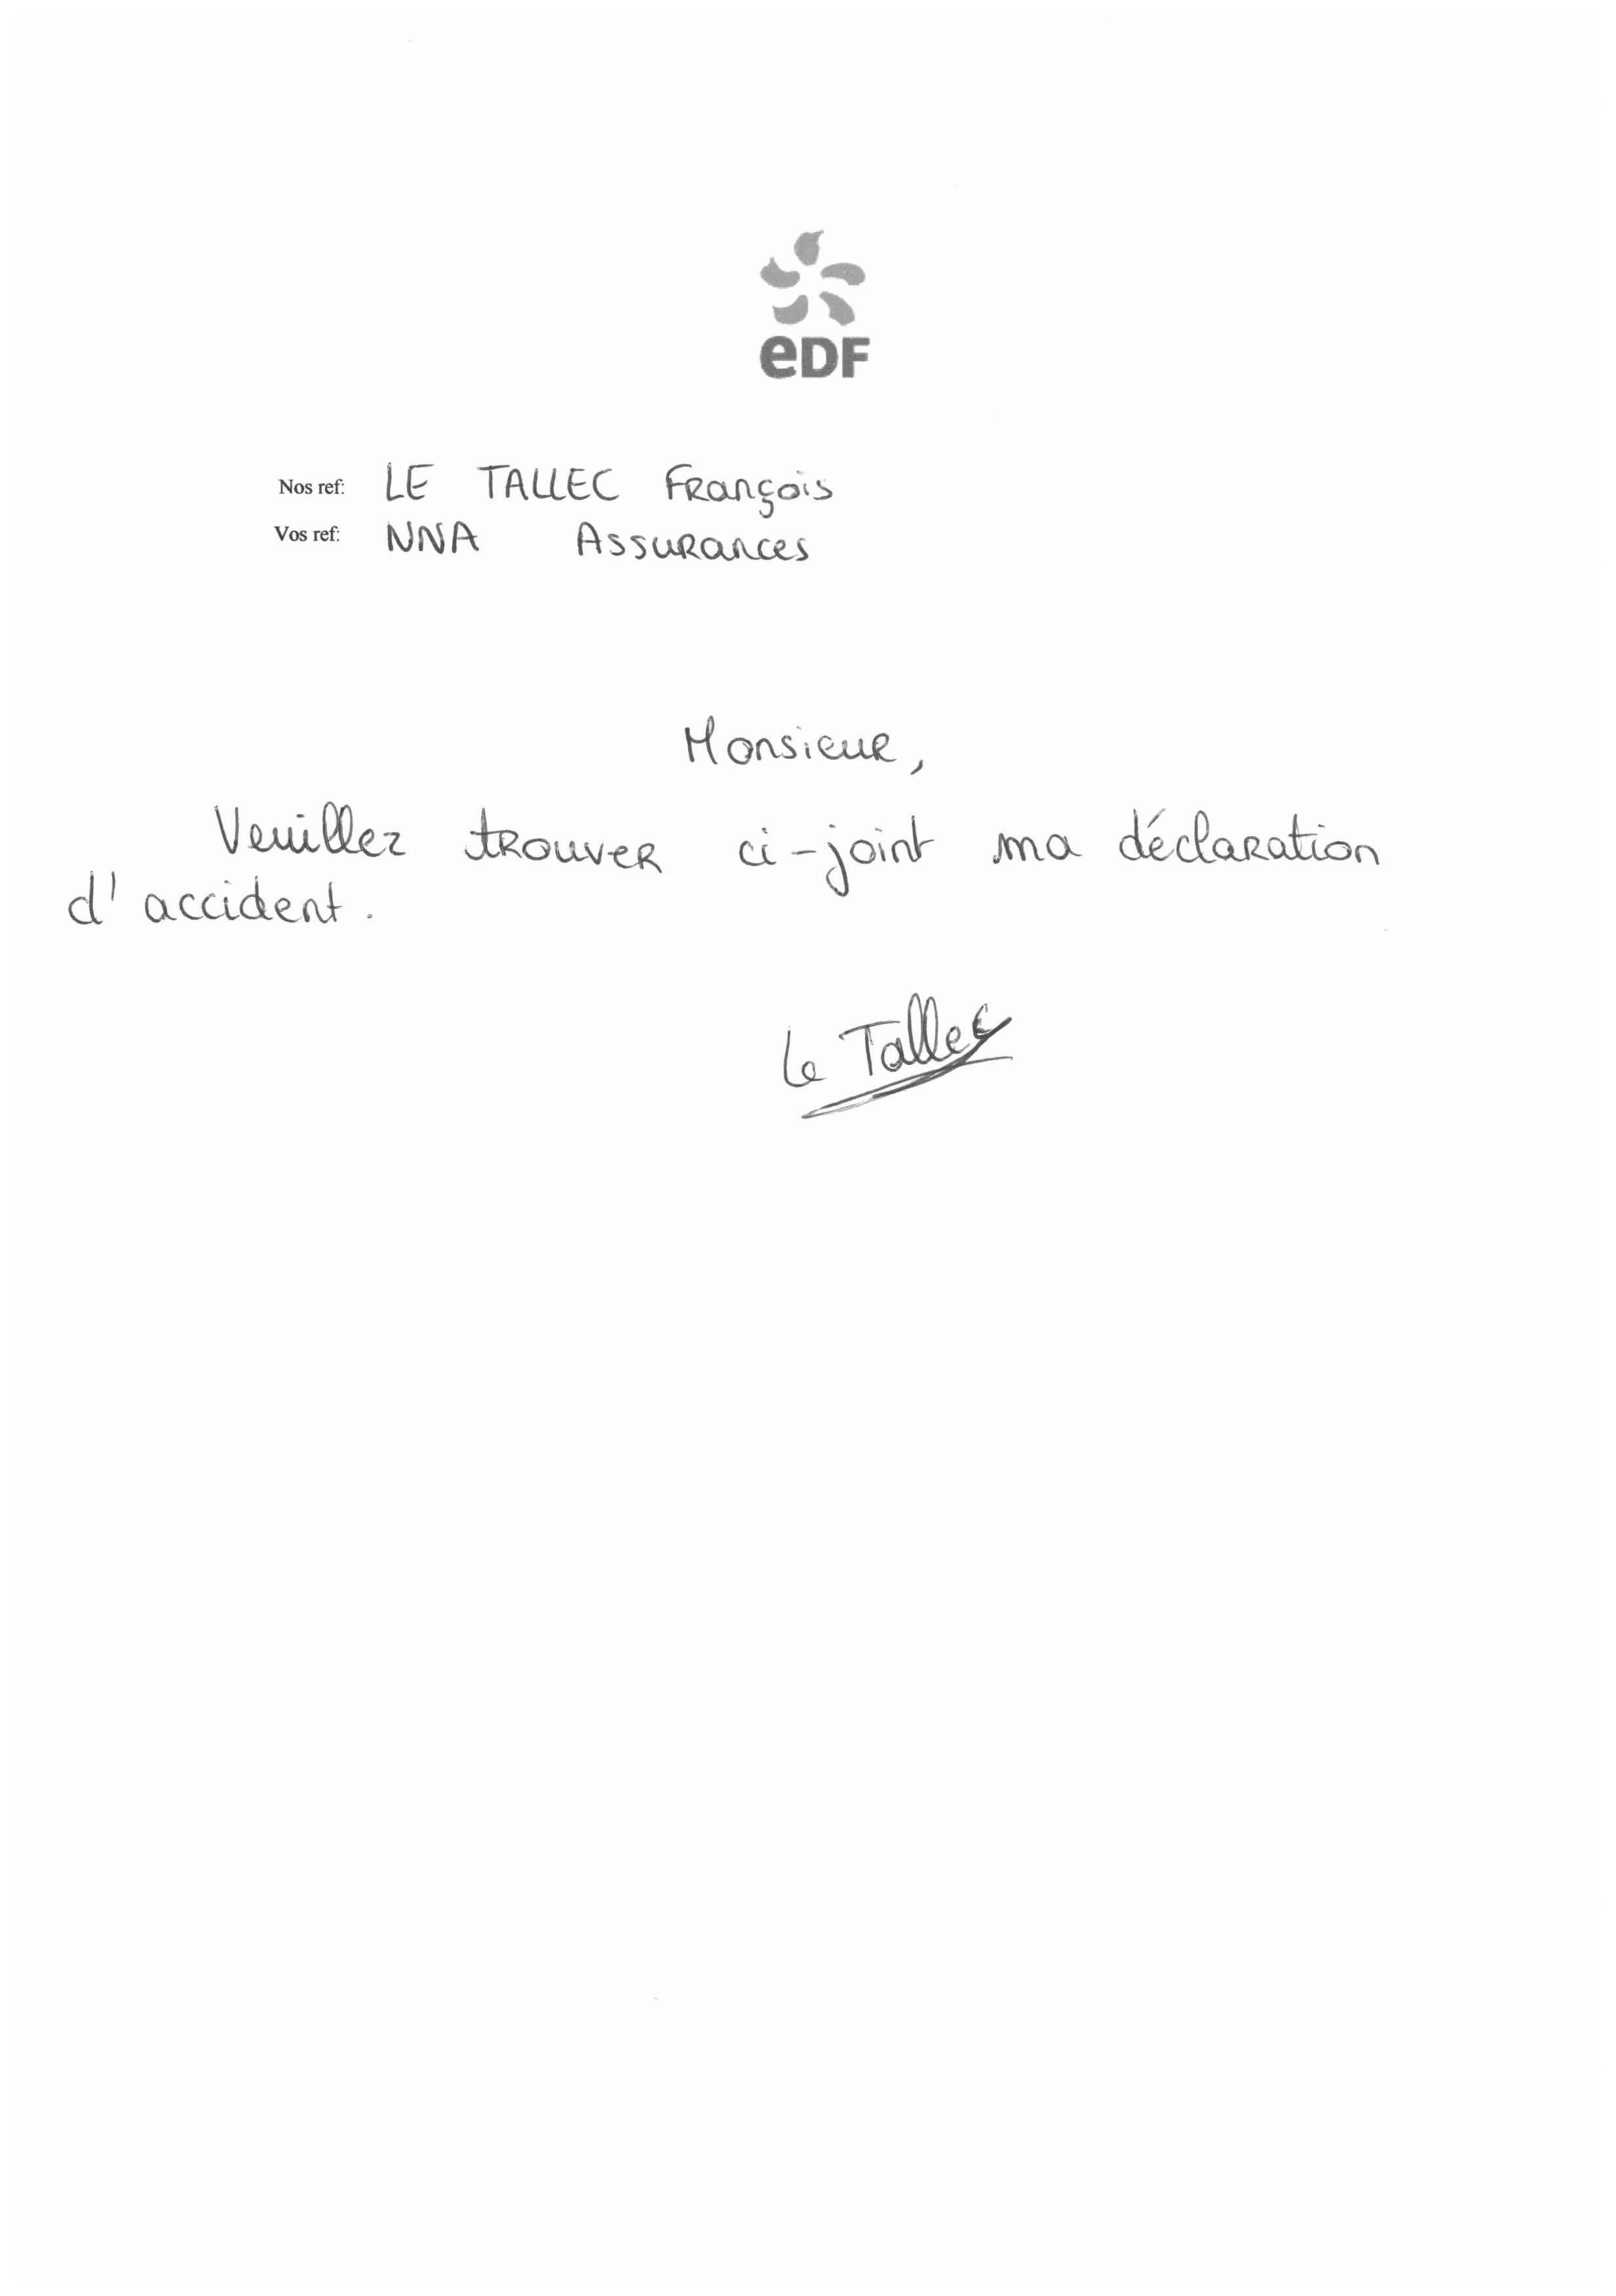 eDF
Nos ref: LE TALLEC François
Vos ref: NNA Assurances
Monsieur,
Veuillez trouver ci-joint ma déclaration
d'accident.
Le Tallec